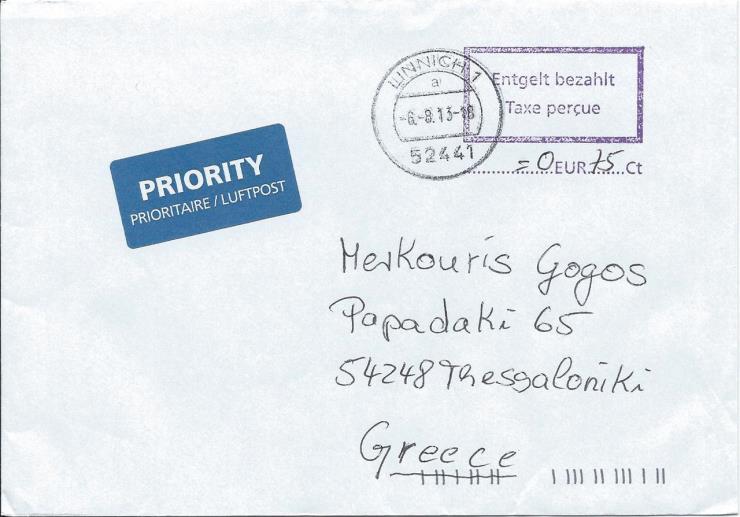 LINNICH 1
a
-6.-8.13-18
52441
Entgelt bezahlt
Taxe perçue
=0 EUR 75 Ct
PRIORITY
PRIORITAIRE / LUFTPOST
Merkouris Gogos
Papadaki 65
54248 Thessaloniki
Greece